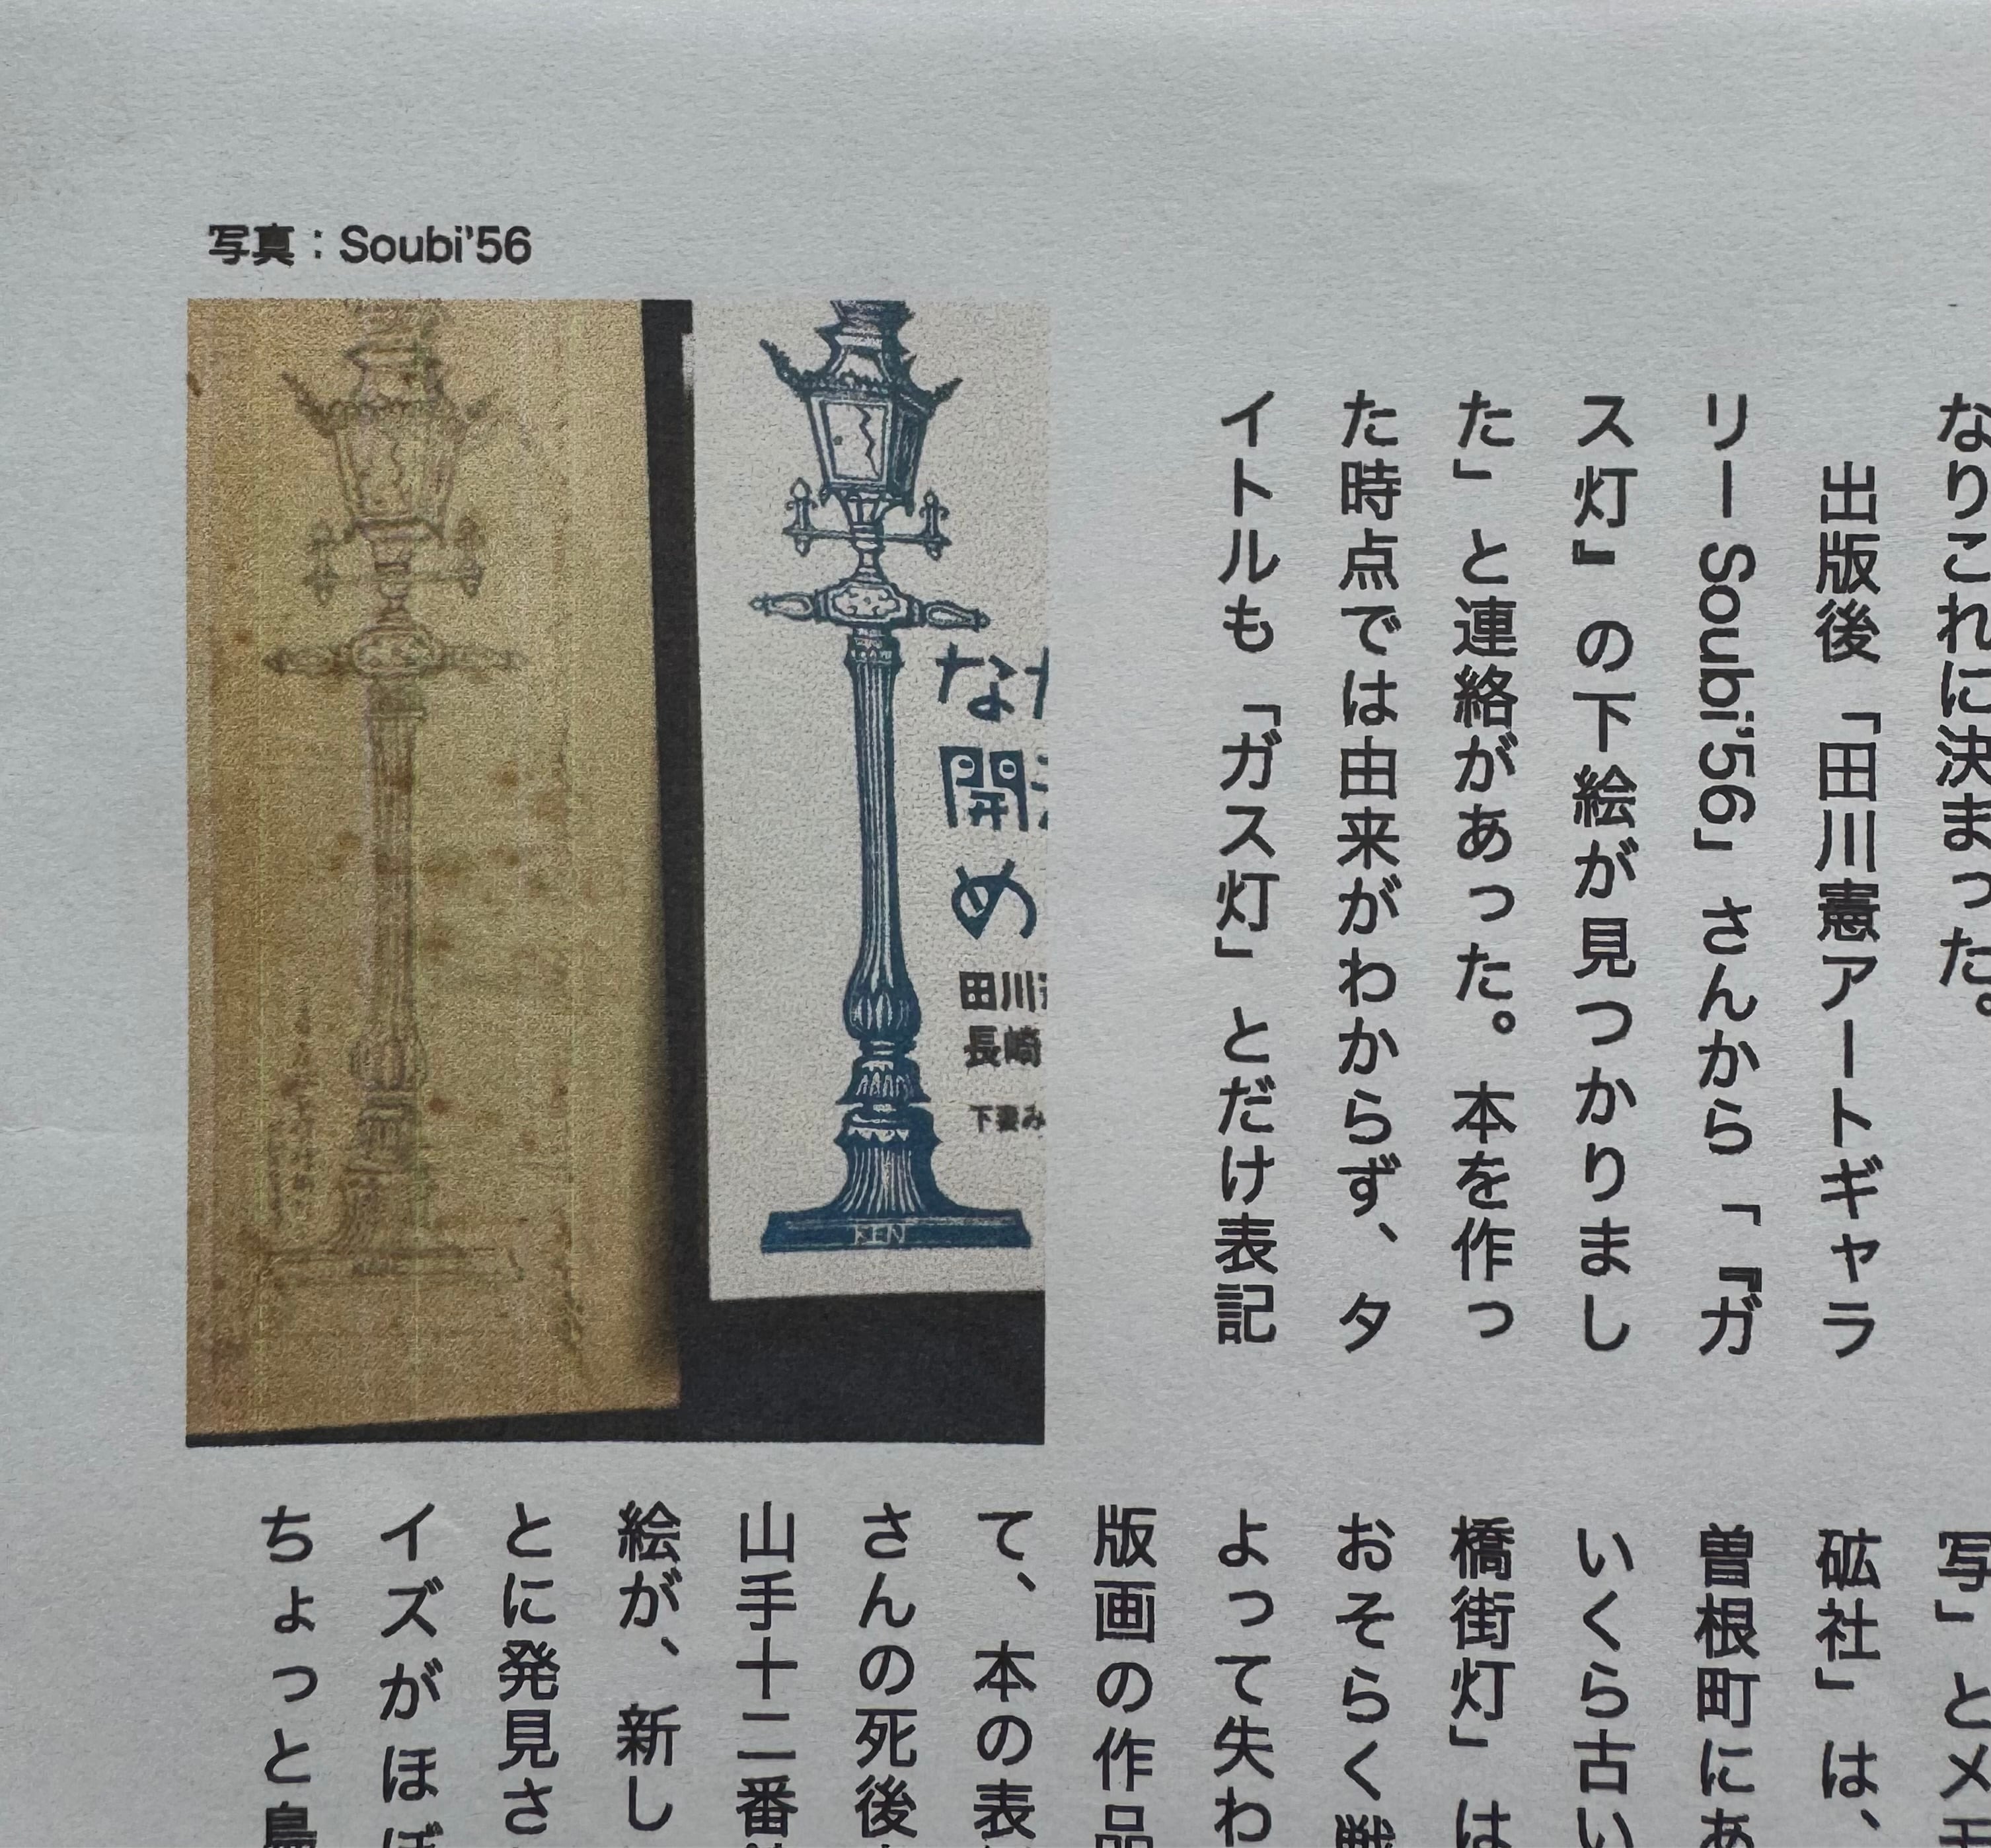 写真：Soubi'56
なりこれに決まった。
出版後「田川憲アートギャラ
リーSoubi'56」さんから「『ガ
ス灯』の下絵が見つかりまし
た」と連絡があった。本を作っ
た時点では由来がわからず、タ
イトルも「ガス灯」とだけ表記
写」とメモ
砿社」は、
曽根町にあ
いくら古い
橋街灯」は
おそらく戦
よって失わ
版画の作品
て、本の表
さんの死後
山手十二番
絵が、新し
とに発見さ
イズがほぼ
ちょっと鳥
な
開
め
田川
長崎
下妻み
KEN